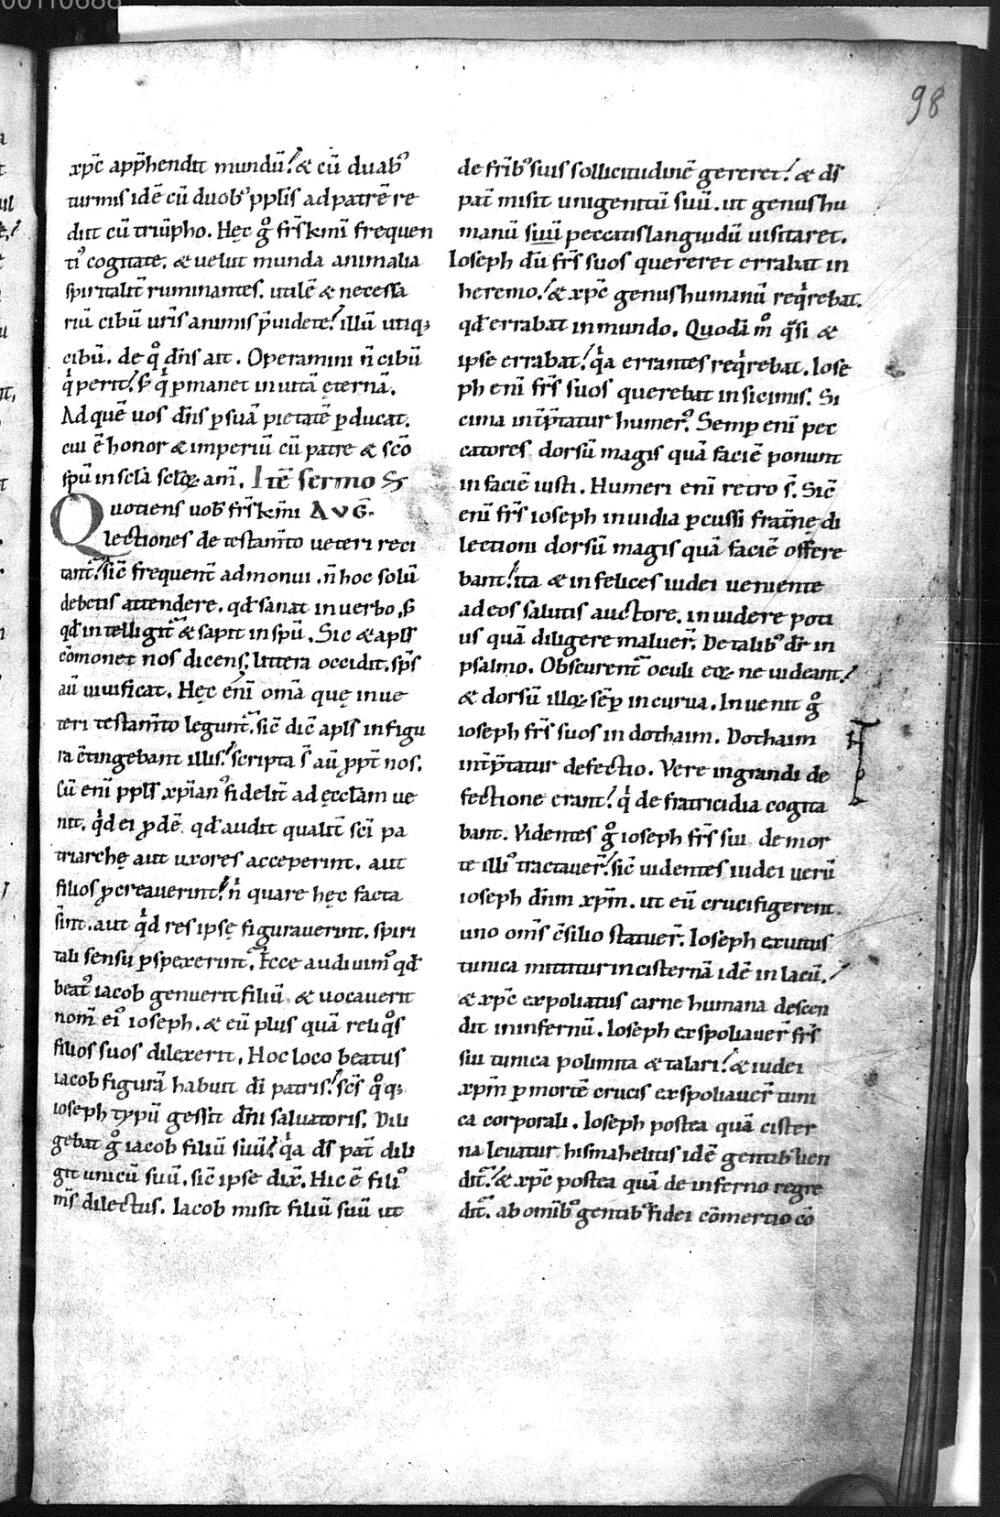 00110688
98
xp̄c app̄hendit mundū. & cū duab᷒
turmis idē cū duob᷒ ppłis ad patrē re
diit cū triūpho. Hęc g° fr̄s km̄i frequen
ti᷒ cogitate. & velut munda animalia
spiritalit̄ ruminantes. utilē & necessa
riū cibū ur̄is animis p̄uidete. illū utiq;
cibū. de q° dn̄s ait. Operamini n̄ cibū
qⁱ perit. s; qⁱ pmanet in uitā ęternā.
Ad quē uos dn̄s p suā pietatē pducat.
cui ē honor & imperiū cū patre & sc̄o
spū in sc̄la sc̄loꝝ am̄. Itē sermo S̄
Quotiens uob̄ fr̄s km̄i AVG̅.
lectiones de testam̄to ueteri reci
tant᷑. sic̄ frequent̄ admonui. n̄ hoc solū
debetis attendere. qd̄ sanat in uerbo. s;
qd̄ intelligit᷑ & sapit in spū. Sic & apłs
cōmonet nos dicens. littera occidit. sp̄s
aū uiuificat. Hęc en̄i om̄a quę in ue
teri testam̄to legunt᷑. sic̄ dic̄ apłs in figu
ra c̄tingebant illis. scripta s̄ aū ꝓpt̄ nos.
Cū eni ppłs xp̄ian᷒ fidelit̄ ad ęccłam ue
nit. qⁱd ei ꝓdē. qd̄ audit qualit̄ sc̄i pa
triarchę aut uxores acceperint. aut
filios ꝓcreauerint. nⁱ quare hęc facta
sint. aut qⁱd res ipsę figurauerint. spiri
tali sensu pspexerint. Ecce audiuim᷒ qd̄
beat᷒ iacob genuerit filiū. & uocauerit
nom̄ ei᷒ ioseph. & eū plus quā reliqⁱs
filios suos dilexerit. Hoc loco beatus
iacob figurā habuit di patris. sc̄s q°q;
ioseph typū gessit dn̄i saluatoris. Dili
gebat g° iacob filiū suū. qⁱa ds̄ pat̄ dili
git unicū suū. sic̄ ipse dix̄. Hic ē fili᷒
m̄s dilectus. Iacob misit filiū suū ut
de fr̄ib᷒ suis sollicitudinē gereret. & ds̄
pat̄ misit unigenitū suū. ut genus hu
manū suū peccatis languidū uisitaret.
Ioseph dū fr̄s suos quereret errabat in
heremo. & xp̄c genus humanū reqⁱrebat.
qd̄ errabat in mundo. Quodā m° qⁱsi &
ipse errabat. qⁱa errantes reqⁱrebat. Iose
ph eni fr̄s suos querebat in sicimis. Si
cima int̄p̄tatur humer᷒. Semp eni pec
catores dorsū magis quā faciē ponunt
in faciē iusti. Humeri eni retro s̄. Sic̄
eni fr̄s ioseph inuidia pcussi frat̄nę di
lectioni dorsū magis quā faciē offere
bant. ita & infelices iudei ueniente
ad eos salutis auctore. inuidere poti
us quā diligere maluer̄. De talib᷒ dr̄ in
psalmo. Obscurent᷑ oculi eoꝝ ne uideant.
& dorsū illoꝝ sēp incurua. Inuenit g°
ioseph fr̄s suos in dothaim. Dothaim
int̄p̄tatur defectio. Vere in grandi de
fectione erant. qⁱ de fratricidia cogita
bant. Videntes g° ioseph fr̄s sui de mor
te illi᷒ tractauer̄. sic̄ uidentes iudei uerū
ioseph dn̄m xp̄m. ut eū crucifigerent.
uno om̄s c̄silio statuer̄. Ioseph exutus
tunica mittitur in cisternā idē in lacū.
& xp̄c expoliatus carne humana descen
dit in infernū. Ioseph exspoliauer̄ fr̄s
sui tunica polimita & talari. & iudei
xp̄m p mortē crucis exspoliauer̄ tuni
ca corporali. Ioseph postea quā cister
na leuatur hismahelitis idē gentib᷒ uen
dit᷑. & xp̄c postea quā de inferno regre
dit᷑. ab omib᷒ gentib᷒ fidei cōmertio cō